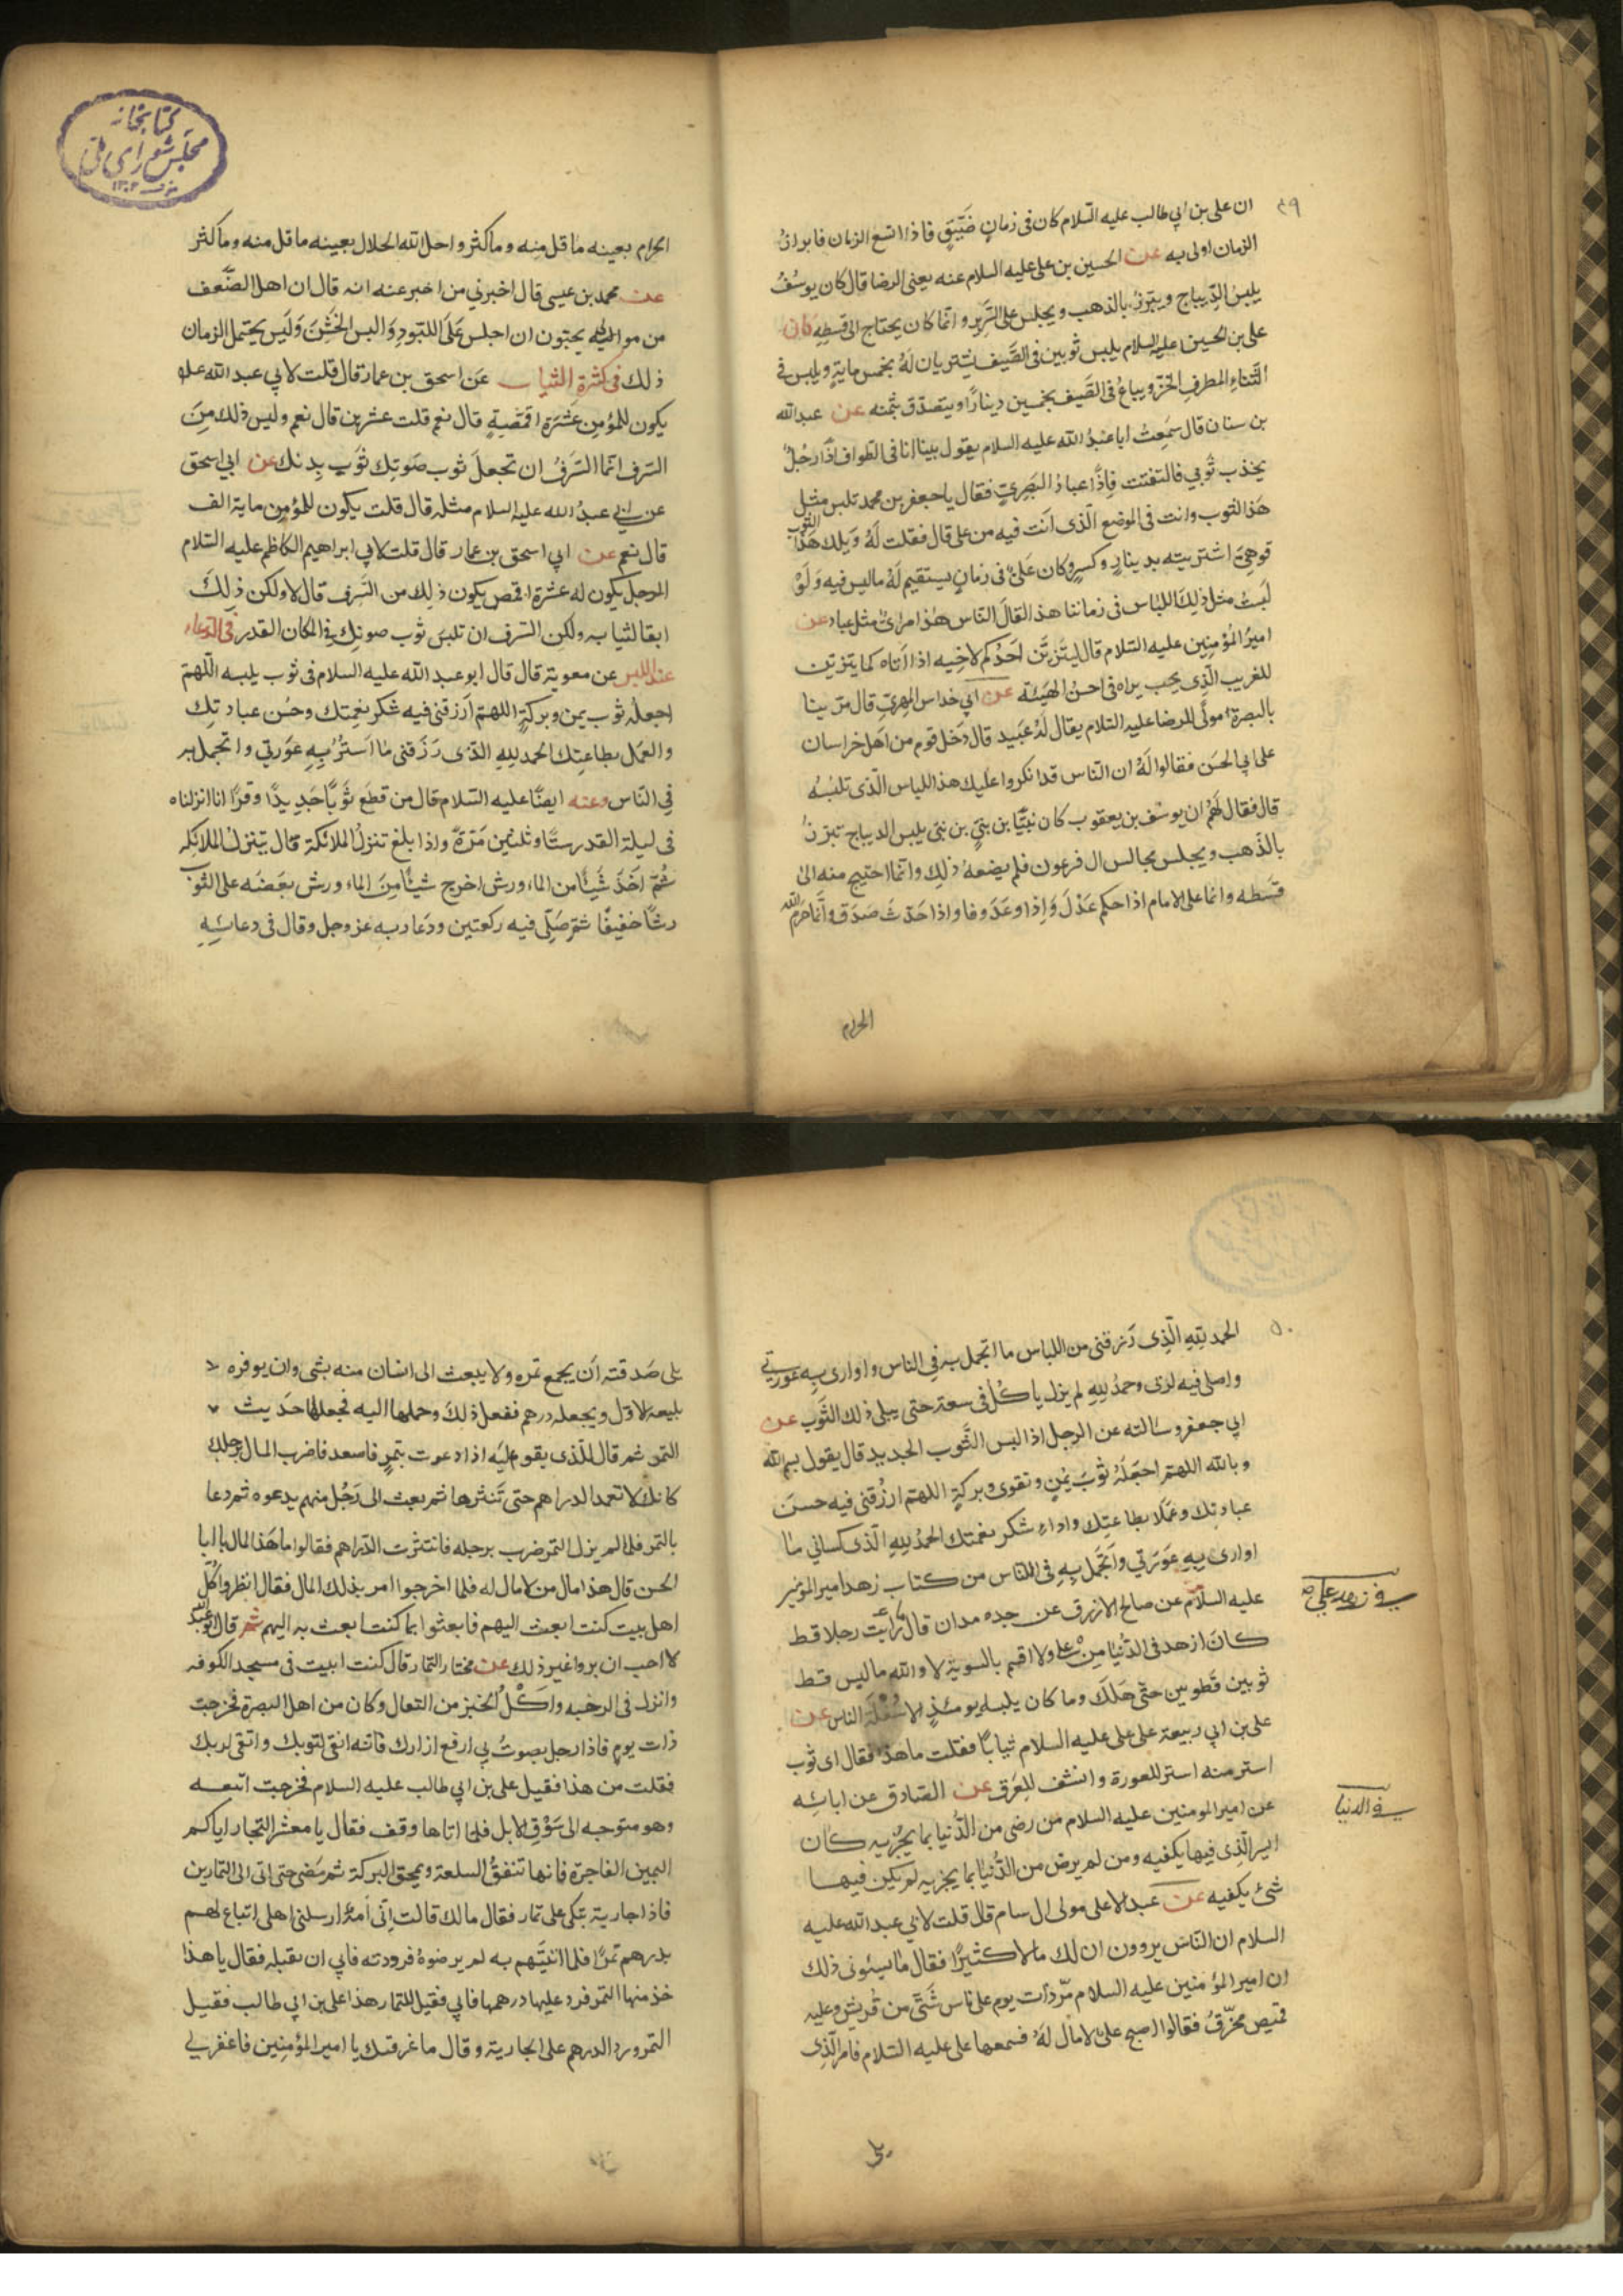 ٤٩
ان على بن ابي طالب عليه السلام كان فى زمانٍ ضَيِّقٍ فاذا اتسع الزمان فابرارُ
الزمان اولى به عن الحسين بن على عليه السلام عنه يعنى الرضا قال كان يوسُفُ
يلبسُ الدِّيباج ويتزرُ بالذهب ويجلس على السَّرير وانما كان يحتاج الى قسطِهِ كان
على بن الحسين عليه السلام يلبس ثوبين فى الصَّيف يشتريان لَهُ بخمس مايةٍ ويلبس فى
الشتاءِ المطرف الخزّ ويباعُ فى الصَّيف بخمسين دينارًا ويتصدّق بثمنه عن عبد الله
بن سنان قال سَمِعتُ ابا عبدُ الله عليه السلام يقول بينا انا فى الطواف اذًا رجُلٌ
يجذب ثوبي فالتفتت فاِذًا عبادُ البَصِريّ فقال يا جعفر بن محمد تلبس مثل
هذا الثوب وانت فى الموضع الّذى انت فيه من على قال فقلت لَهُ وَيلك هَذا الثوب
قوهِىّ اشتريته بدينارٍ وكسرٍ وكان عَلىٌّ فى زمانٍ يستقيم لَهُ ما لبس فيه وَلَوْ
لَبستُ مثل ذلِكَ اللباس فى زماننا هذا لقالَ الناس هذا مراىٌ مثل عباد عن
امير المؤمنِين عليه السّلام قال ليتَزيّن اَحَدُكم لاخِيه اذا اَتاه كما يتزيّن
للغريب الّذِى يحب يراه فى احسن الهَيئة عن ابي خداس المهرىّ قال مرّ بنا
بالبصرة مولًى للرضا عليه السّلام يقال لَهُ عَبيد قال دَخل قوم من اَهل خراسان
على ابي الحسَن فقالوا لَهُ ان الناس قد انكروا عليك هذا اللباس الّذى تلبسُهُ
قال فقال لهُم ان يوسُف بن يعقوب كان نبيًّا بن نبىّ بن نبى يلبس الديباج تيزرُ
بالذَهب ويجلس مجالس ال فرعون فلم يضعهُ ذلِك وانما احتيج منه الىٰ
قسَطه وانما على الامام اذا حكم عَدْلَ وَاِذا وعَدَ وفا واذا حَدّثَ صَدَق وانما حَرّم الله
الحرام
الحرام بعينه ما قل مِنه وما كثر واحل الله الحلال بعينه ما قل منه وما كثر
عن محمد بن عيسى قال اخبرني من اخبر عنه انه قال ان اهل الضّعف
من موالىّ يحبّون ان اجلس عَلَى اللبّودِ وَالبس الخَشِنَ وَلَيس يحتمل الزمان
ذلك فى كثرة الثياب عَن اسحق بن عمار قال قلت لابي عبد الله عليه
يكون للمُؤمِن عَشَرة اقمصَةٍ قال نعم قلت عشرين قال نعم وليس ذلك مِنَ
السرف انما السَرَفُ ان تجعلَ ثوب صَوتِك ثوب بِدنك عن ابي اسحق
عن ابي عبدُ الله عليه السلام مثله قال قلت يكون للمُؤمِن ماية الف
قال نعم عن ابي اسحق بن عمار قال قلت لابي ابراهيم الكاظم عليه السّلام
الرجل يكون له عشرة اقمص يكون ذلِك من السَرف قال لا ولكن ذلِكَ
ابقا لثيابه ولكن السّرف ان تلبسَ ثوب صونِك فى المكان القدر فى الدعاء
عند اللبس عن معوية قال قال ابو عبد الله عليه السلام فى ثوب يلبسه اللّهمّ
اجعلهُ ثوب يمن وبركةٍ اللهمّ اَرزقنى فيه شكر نعِمتِك وحسُن عبادتِك
والعمَل بطاعتِك الحمدُ لِلّهِ الذى رَزَقنى ما اَستُرُ بِهِ عَورتي واتجمل به
فِى النّاس وعنه ايضًا عليه السّلام قال من قطع ثَوبًا جَدِيدًا وقرأ انا انزلناه
فى ليلة القدر ستًّا وثلثين مَرّةً واذا بلغ تنزلُ الملائكة قال تيَنزل الملائكه
ثُمّ اخَذَ شَيئًا من الماء ورش اخرج شيئًا مِنَ الماء ورش بعَضَه على الثوب
رشًّا خفيفًا ثمّ صَلّى فيه ركعتين ودَعا ربه عز وجل وقال فى دعائِهِ
كتابخانه
مجلس شوراى ملى
٥٠
الحمد لِلّهِ الّذِى رَزقنى من اللباس ما اتجمل به فِى الناس واوارى بِه عورتي
واصلى فيه لربى وحمدُ لِلّهِ لم يزل ياكُلُ فى سعة حتى يبلى ذلك الثَوب عن
ابي جعفر وسَالته عن الرجل اذا لبس الثّوب الجديد قال يقول بسم الله
وبالله اللهمّ اجعَلهُ ثوبَ يُمنٍ وتقوى وبركةٍ اللهمّ ارزُقنى فيه حسنَ
عبادتِك وعَمَلا بطاعتِك واداءِ شكر نعمتك الحمدُ لِلّهِ الّذى كساني ما
اوارى بِهِ عَورَتي واَتجَمّل بِهِ فى الناس من كتاب زهد امير المؤمنين
عليه السلام عن صالح الازرق عن جده مدان قال ما رَأيت رجلا قط
كانَ ازهد فى الدُّنيا مِن على ولا اقسم بالسوية لا والله ما لبس قط
ثوبين قَطويين حتّى هَلَكَ وما كان يلبسه يومئذٍ الا سُفلَة الناس عن
على بن ابي ربيعة على على عليه السلام ثيابًا فقلت ما هذا فقال اى ثوب
استر منه استر للعورة وانشف للعِرَق عن الصّادق عن ابائِه
عن امير المومنين عليه السلام من رضى من الدُّنيا بما يجزيه كان
ايسر الّذِى فيها يكفيه ومن لم يرض من الدُّنيا بما يجزيه لم يكن فيها
شئ يكفيه عن عبد الاعلى مولى ال سام قال قلت لابي عبد الله عليه
السلام ان الناسَ يروون ان لك مالا كثيرًا فقال ما يسئونى ذلك
ان امير المؤمنين عليه السلام مرّ ذاتَ يوم على ناس شَتّى من قريش وعليه
قميص مخرّقُ فقالوا اصبح علىٌّ لا مال لَهُ فسمعها على عليه السّلام فامر الّذِى
يلى
فى زهد على ع
فى الدنيا
يلى صَدقته اَن يجمع تمره ولا يبعث الى انسان منه بشى وان يوفره
بليعه الاول ويجعله درهم ففعل ذلكَ وحملها اليه فجعلها حَدَيث
التمر ثم قال للّذى يقوم عليه اذا دعوت بتمرٍ فاصعد فاضرب المال برجلِك
كانك لا تعمد الدراهم حتى تَنثرها ثم بعث الى رَجُل منهم يدعوه ثم دعا
بالتمر فلما لم يزل التمر ضرب برجله فانتثرت الدّراهم فقالوا ما هَذا المال يا ابا
الحسن قال هذا مال من لا مال له فلما اخرجوا امر بذلك المال فقال انظروا كُل
اهل بيت كنت ابعث اليهم فابعثوا بما كنت ابعث به اليهم ثم قال ابو عبد الله
لا احب ان يروا غير ذلك عن مختار التمار قال كنت ابيت فى مسجد الكوفه
وانزل فى الرحبه واكُلُ الخبز من البقال وكان من اهل البصرة فخرجت
ذات يومٍ فاذا رجل يصوتُ بي ارفع ازارك فانه انقى لثوبك واتقى لربك
فقلت من هذا فقيل على بن ابي طالب عليه السلام فخرجت اتبعه
وهو متوجه الى سُوقِ الابل فلما اتاها وقف فقال يا معشر التجار اياكم
اليمين الفاجرة فانها تنفقُ السلعة ويمحق البركة ثم مَضى حتى اتى الى التمارين
فاذا جارية تبكى على تمار فقال مالك قالت اِنّى اَمَةٌ ارسلنى اهلى اِبتاع لهم
بدرهم تمرًا فلما اتيتَهم به لم يرضوهُ فرددته فابي ان يقبله فقال يا هذا
خذ منها التمر فرد عليها درهمها فابي فقيل للتمار هذا على بن ابي طالب فقبل
التمر ورد الدرهم على الجارية وقال ما عَرفتك يا امير المؤمنِين فاغفر لي